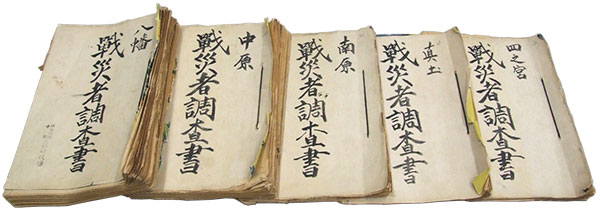 四之宮
戦災者調査書
真土
戦災者調査書
南原
戦災者調査書
中原
戦災者調査書
八幡
戦災者調査書